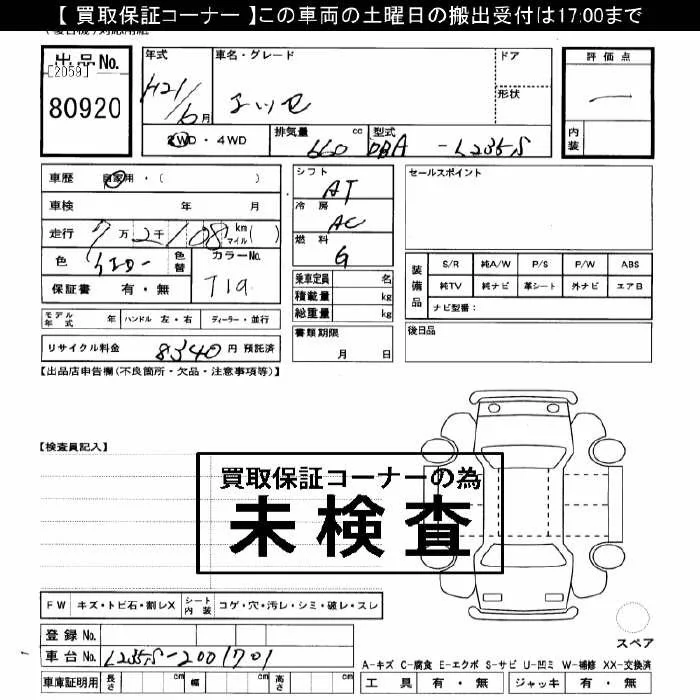 【 買取保証コーナー 】この車両の土曜日の搬出受付は17:00まで
出品No.
[2059]
80920
年式
H21/6月
車名・グレード
エッセ
ドア
形状
評価点
—
内装
2WD・4WD
排気量 660 cc
型式 DBA-L235S
車歴 自家用・( )
車検 年 月
走行 7万2千108 km マイル( )
色 イエロー 色替
カラーNo. T19
保証書 有・無
シフト AT
冷房 AC
燃料 G
乗車定員 名
積載量 kg
総重量 kg
セールスポイント
装備品
S/R 純A/W P/S P/W ABS
純TV 純ナビ 革シート 外ナビ エアB
ナビ型番:
モデル年式 年 ハンドル 左・右 ディーラー・並行
書類期限
月 日
後日品
リサイクル料金 8340 円 預託済
【出品店申告欄(不良箇所・欠品・注意事項等)】
【検査員記入】
買取保証コーナーの為
未検査
FW キズ・トビ石・割レX シート内装 コゲ・穴・汚レ・シミ・破レ・スレ
登録 No.
車台 No. L235S-2001701
スペア
A-キズ C-腐食 E-エクボ S-サビ U-凹ミ W-補修 XX-交換済
車庫証明用 長さ cm 幅 cm 高さ cm
工具 有・無 ジャッキ 有・無